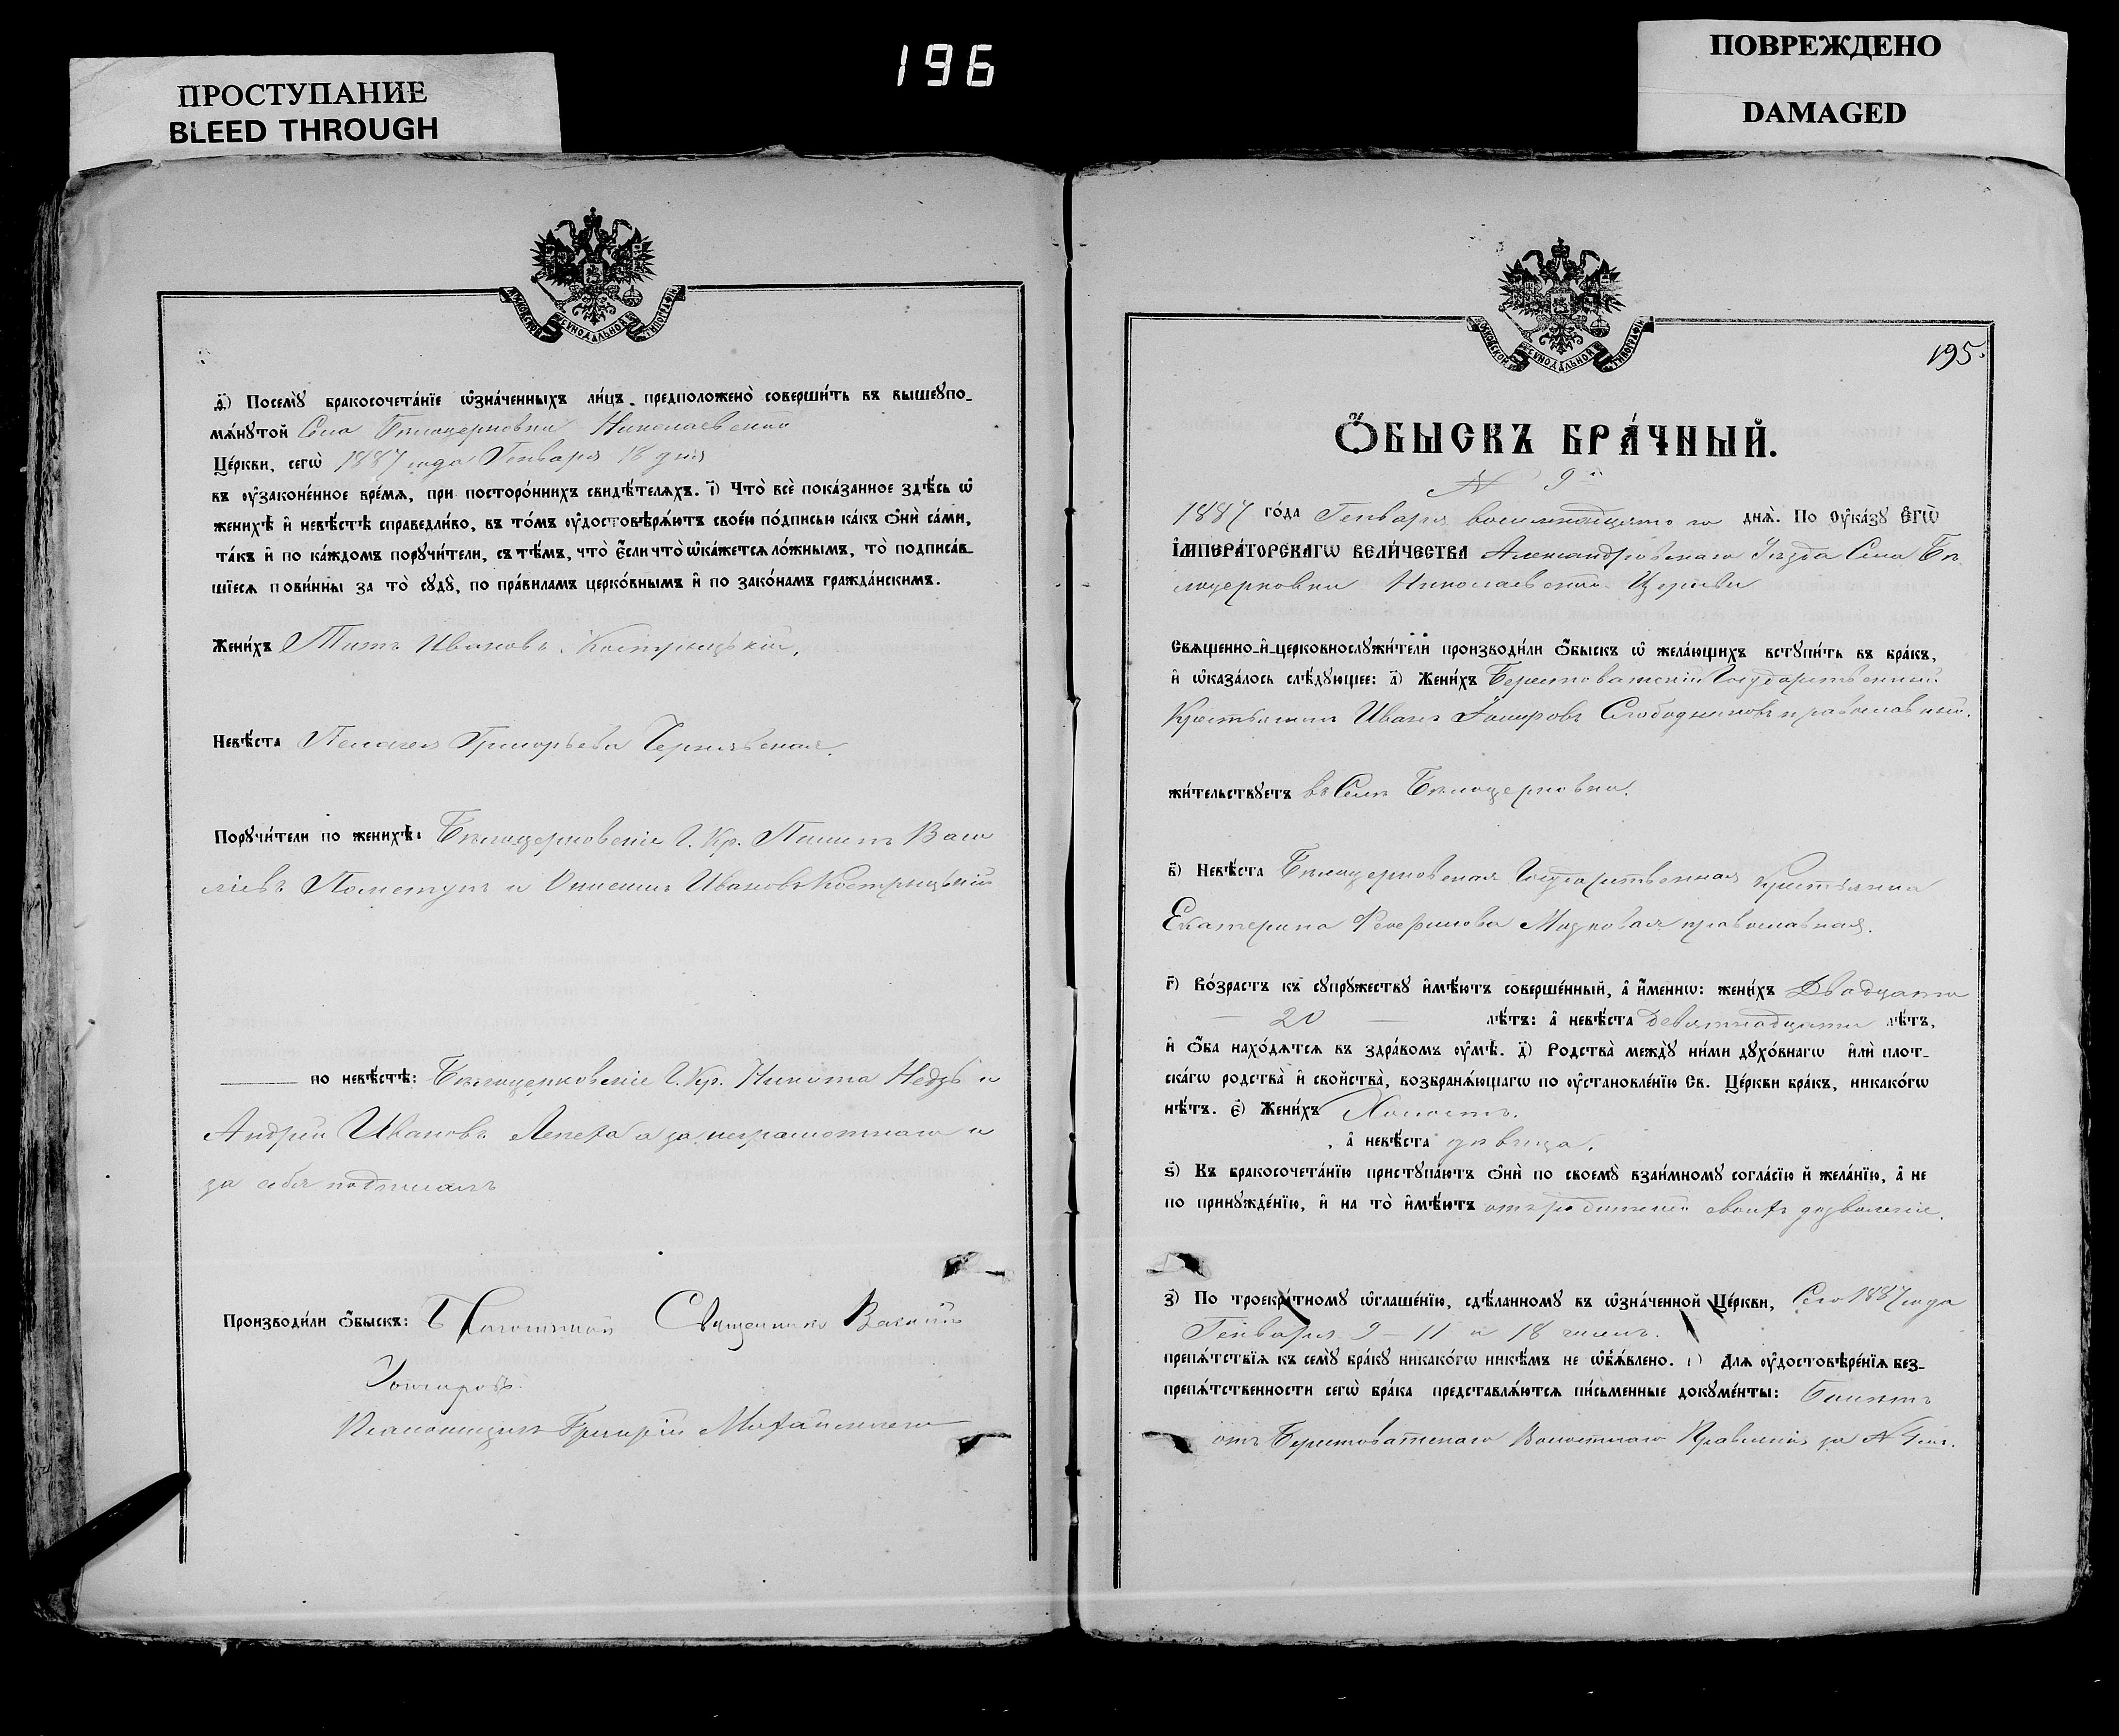 ПРОСТУПАНИЕ
BLEED THROUGH
196
ПОВРЕЖДЕНО
DAMAGED
МОСКОВСКОЙ СѴНОДАЛЬНОЙ ТИПОГРАФІИ
Посемꙋ̀ бракосочета́нїе ѡ҆зна́ченныхъ ли́цъ предположено̀ соверши́ть въ вышеꙋпо-
мѧ́нꙋтой Села Бѣлоцерковки Николаевской
Це́ркви, сегѡ̀ 1887 года Генваря 18 дня
въ ᲂу҆законе́нное вре́мѧ, при посторо́ннихъ свидѣ́телѧхъ. і҃) Что̀ всѐ пока́занное здѣ́сь ѡ҆
женихѣ̀ и҆ невѣ́стѣ справедли́во, въ то́мъ ᲂу҆достовѣрѧ́ютъ свое́ю по́дписью ка́къ ѻ҆нѝ са́ми,
та́къ и҆ по ка́ждомъ порꙋчи́тели, съ тѣ́мъ, что̀ є҆́сли что̀ ѡ҆ка́жетсѧ ло́жнымъ, то̀ подписа́в-
шїесѧ пови́нны за то̀ сꙋдꙋ̀, по пра́виламъ церко́внымъ и҆ по зако́намъ гражда́нскимъ.
Жени́хъ Титъ Ивановъ Кострицькій.
Невѣ́ста Пелагея Григорьева Чернявская.
Порꙋчи́тели по женихѣ̀: Бѣлоцерковскіе Г. Кр. Васи
ліевъ и Ивановъ Кострицькій
по невѣ́стѣ: Бѣлоцерковскіе Г. Кр. Никита и
Андрей Ивановъ Лепеха а за неграмотнаго и
за себя подписалъ
Производи́ли ѻ҆́быскъ: Священникъ Василій
Гончаровъ
Псаломщикъ Григорій
МОСКОВСКОЙ СѴНОДАЛЬНОЙ ТИПОГРАФІИ
195.
Ѻ҆́БЫСКЪ БРА́ЧНЫЙ.
N 9й
1887 го́да Генваря восемнадцатого днѧ̀. По ᲂу҆ка́зꙋ є҆гѡ̀
і҆мпера́торскагѡ вели́чества Александровскаго Уѣзда Села Бѣ
лоцерковки Николаевской Церкви
Свѧщенно-и҆-церковнослꙋжи́тели производи́ли ѻ҆́быскъ ѡ҆ жела́ющихъ встꙋпи́ть въ бра́къ,
и҆ ѡ҆каза́лось слѣ́дꙋющее: а҃) Жени́хъ Берестоватскій Государственный
Крестьянинъ Иванъ Слободяниковъ православный.
жи́тельствꙋетъ въ Селѣ Бѣлоцерковки.
в҃) Невѣ́ста Бѣлоцерковская Государственная Крестьянка
Екатерина православная.
г҃) Во́зрастъ къ сꙋпрꙋ́жествꙋ и҆мѣ́ютъ соверше́нный, а҆ и҆́меннѡ: жени́хъ Двадцати
— 20 — лѣ́тъ: а҆ невѣ́ста Девятнадцати лѣ́тъ,
и҆ ѻ҆́ба нахо́дѧтсѧ въ здра́вомъ ᲂу҆мѣ̀. д҃) Родства̀ междꙋ̀ ни́ми дꙋхо́внагѡ и҆лѝ плот-
ска́гѡ родства̀ и҆ свойства̀, возбранѧ́ющагѡ по ᲂу҆становле́нїю Св. Це́ркви бра́къ, никако́гѡ
нѣ́тъ. є҃) Жени́хъ Холостъ.
, а҆ невѣ́ста дѣвица.
ѕ҃) Къ бракосочета́нїю пристꙋпа́ютъ ѻ҆нѝ по своемꙋ̀ взаи́мномꙋ согла́сїю и҆ жела́нїю, а҆ не
по принꙋжде́нїю, и҆ на то̀ и҆мѣ́ютъ отъ родителей своихъ дозволеніе.
з҃) По троекра́тномꙋ ѡ҆глаше́нїю, сдѣ́ланномꙋ въ ѡ҆зна́ченной Це́ркви, Сего 1887 года
Генваря 9 – 11 и 18 чиселъ.
препѧ́тствїѧ къ семꙋ̀ бра́кꙋ никако́гѡ никѣ́мъ не ѡ҆б̾ѧ́влено. Длѧ ᲂу҆достовѣре́нїѧ без-
препѧ́тственности сегѡ̀ бра́ка представлѧ́ютсѧ пи́сьменные докꙋме́нты: Билетъ
отъ Берестоватскаго Волостнаго Правленія за N